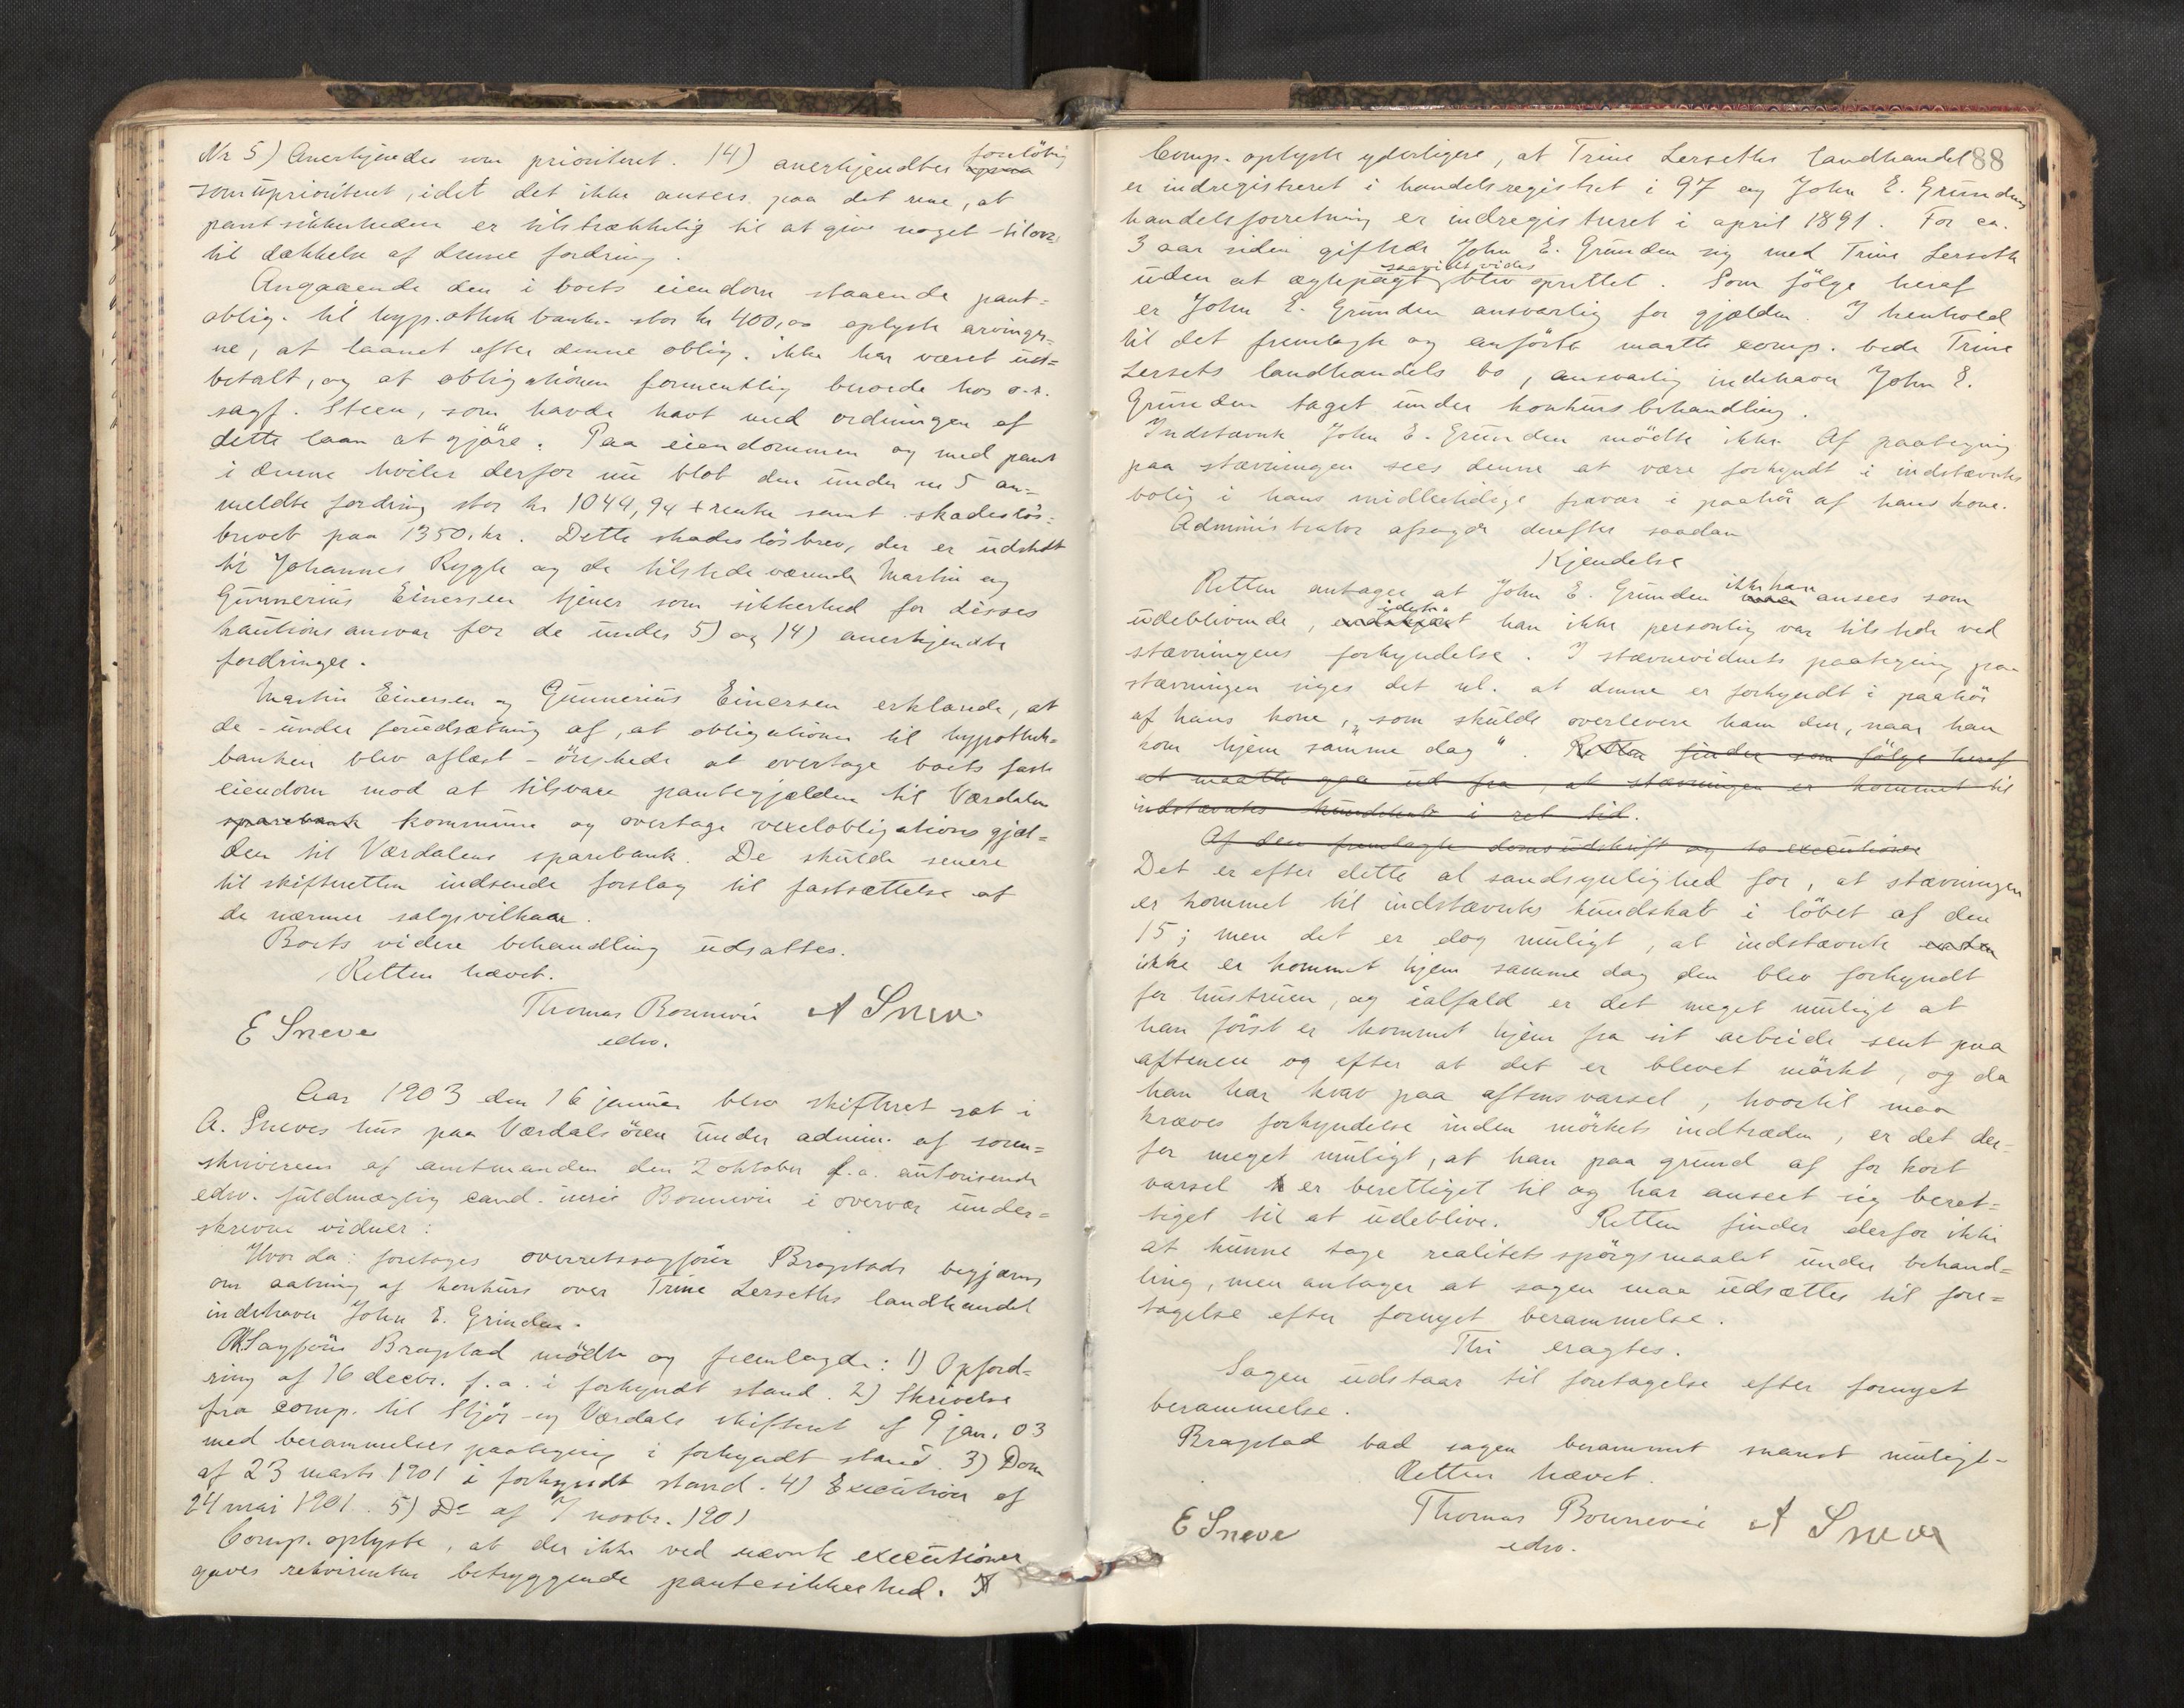 Nr 5) Anerkjendes som prioriteret. 14) anerkjendtes foreløbig
som uprioriteret, idet det ikke ansees paa det rene, at
pantsikkerheden er tilstrækkelig til at give noget tilovers
til dækkelse af denne fordring.
Angaaende den i boets eiendom staaende pant-
oblig. til hyp.othekbanken stor kr 400,00 oplyste arvinger-
ne, at laanet efter denne oblig. ikke har været ud-
betalt, og at obligationen formentlig beroede hos o.r.
sagf. Steen, som havde havt med ordningen af
dette laan at gjøre. Paa eiendommen og med pant
i denne hviler derfor nu blot den under nr 5 an-
meldte fordring stor kr 1044,94 + rente samt skadesløs-
brevet paa 1350, kr. Dette skadesløsbrev, der er udstedt
til Johannes Rygle og de tilstedeværende Martin og
Gunnerius Einersen tjener som sikkerhed for disses
kautionsansvar for de under 5) og 14) anerkjendte
fordringer.
Martin Einersen og Gunnerius Einersen erklærede, at
de - under forudsætning af, at obligationen til hypothek-
banken blev aflæst - ønskede at overtage boets faste
eiendom mod at tilsvare pantegjælden til Værdalen
sparebank kommune og overtage vexelobligationsgjæl-
den til Værdalens sparebank. De skulde senere
til skifteretten indsende forslag til fastsættelse af
de nærmere salgsvilkaar.
Boets videre behandling udsattes.
Retten hævet.
E Sneve Thomas Bonnevie A Sneve
edsv.
Aar 1903 den 16 januar blev skifteret sat i
A. Sneves hus paa Værdalsøren under admin. af soren-
skriverens af amtmanden den 2 oktober f.a. autoriserede
edsv. fuldmægtig cand. juris Bonnevie i overvær under-
skrevne vidner:
Hvor da: foretoges overretssagfører Bragstads begjæring
om aabning af konkurs over Trine Lerseths landhandel
indehaver John E. Grinden.
Sagfører Bragstad mødte og fremlagde: 1) Opford-
ring af 16 decbr. f.a. i forkyndt stand. 2) Skrivelse
fra comp. til Stjør- og Værdals skifteret af 9 jan. 03
med berammelsespaategning i forkyndt stand. 3) Dom
af 23 marts 1901 i forkyndt stand. 4) Execution af
24 mai 1901. 5) Do af 7 novbr. 1901
Comp. oplyste, at der ikke ved nævnte executioner
gaves rekvirenten betryggende pantesikkerhed.
88
Comp. oplyste yderligere, at Trine Lerseths landhandel
er indregistreret i handelsregistret i 97 og John E. Grundens
handelsforretning er indregistreret i april 1891. For ca.
3 aar siden giftede John E. Grunden sig med Trine Lerseth
uden at ægtepagt saavidt vides blev oprettet. Som følge heraf
er John E. Grunden ansvarlig for gjælden. I henhold
til det fremlagte og anførte maatte comp. bede Trine
Lersets landhandels bo, ansvarlig indehaver John E.
Grunden taget under konkursbehandling.
Indstævnte John E. Grunden mødte ikke. Af paategning
paa stævningen sees denne at være forkyndt i indstævntes
bolig i hans midlertidige fravær i paahør af hans kone.
Administrator afsagde derefter saadan
Kjendelse
Retten antager at John E. Grunden ikke kan ansees som
udeblivende, idet han ikke personlig var tilstede ved
stævningens forkyndelse. I stævnevidnets paategning paa
stævningen siges det nl. at denne er forkyndt i paahør
af hans kone, „som skulde overlevere ham den, naar han
kom hjem samme dag“. Retten finder som følge heraf
at maatte gaa ud fra, at stævningen er kommet til
indstævntes kundskab i ret tid.
Af den fremlagte domsudskrift og to executioner
Det er efter dette al sandsynlighed for, at stævningen
er kommet til indstævntes kundskab i løbet af den
15; men det er dog muligt, at indstævnte
ikke er kommet hjem samme dag den blev forkyndt
for hustruen, og ialfald er det meget muligt at
han først er kommet hjem fra sit arbeide sent paa
aftenen og efter at det er blevet mørkt, og da
han har krav paa aftens varsel, hvortil maa
kræves forkyndelse inden mørkets indtræden, er det der-
for meget muligt, at han paa grund af for kort
varsel er berettiget til og har anseet sig beret-
tiget til at udeblive. Retten finder derfor ikke
at kunne tage realitetsspørgsmaalet under behand-
ling, men antager at sagen maa udsættes til fore-
tagelse efter fornyet berammelse.
Thi eragtes.
Sagen udstaar til foretagelse efter fornyet
berammelse.
Bragstad bad sagen berammet snarest muligt.
Retten hævet.
E Sneve Thomas Bonnevie A Sneve
edsv.